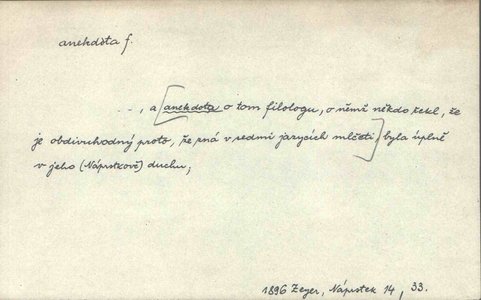 anekdota f.
..., a [anekdota o tom filologu, o němž někdo řekl, že
je obdivuhodný proto, že zná v sedmi jazycích mlčeti] byla úplně
v jeho (Náprstkově) duchu;
1896 Zeyer, Náprstek 14, 33.